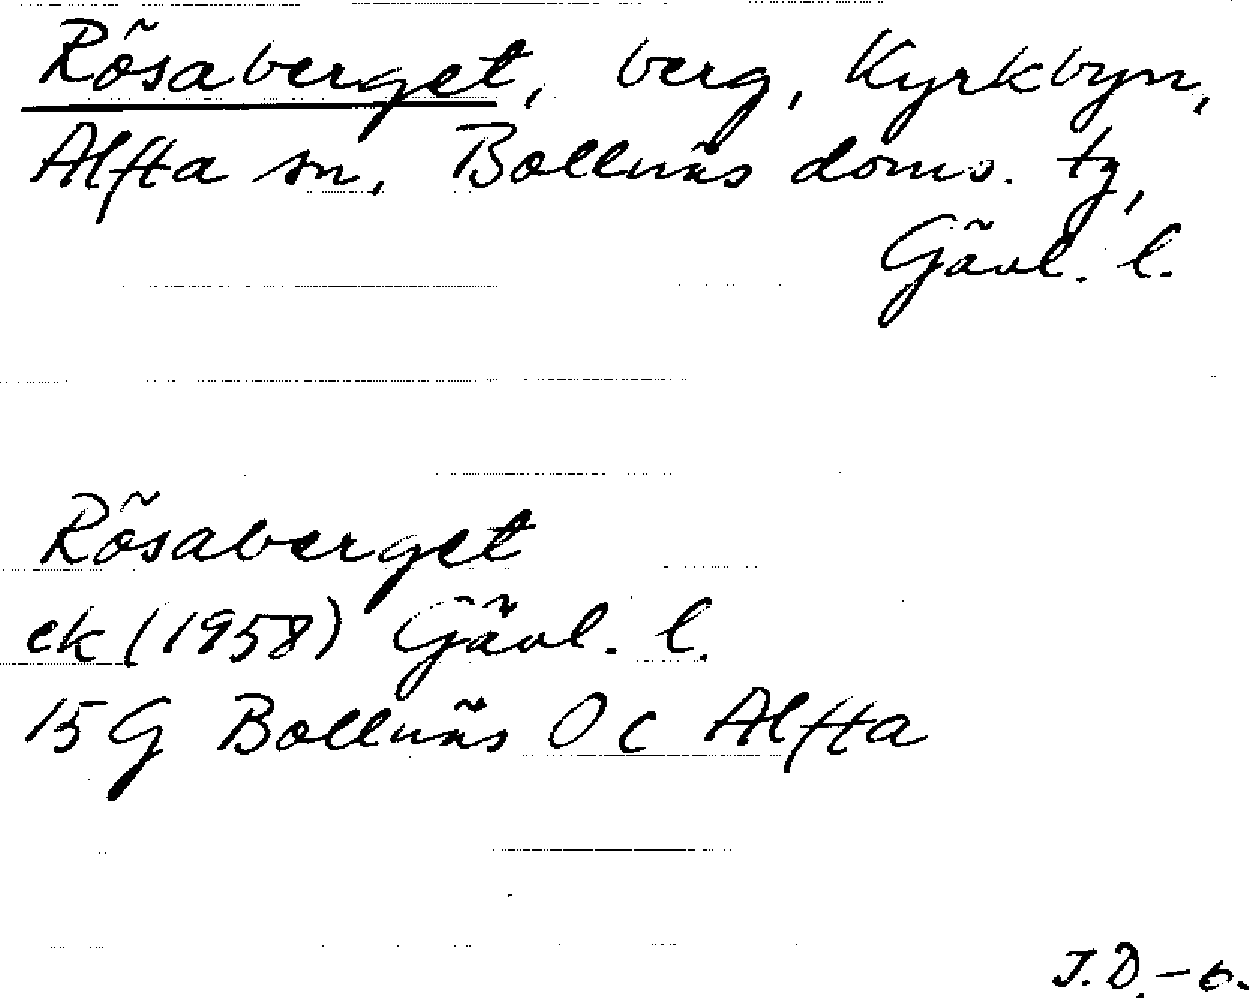 Rösaberget, berg, Kyrkbyn,
Alfta sn, Bollnäs doms. tg,
Gävl. l.
Rösaberget
ek (1958) Gävl. l.
15G Bollnäs 0c Alfta
J.D.-6.